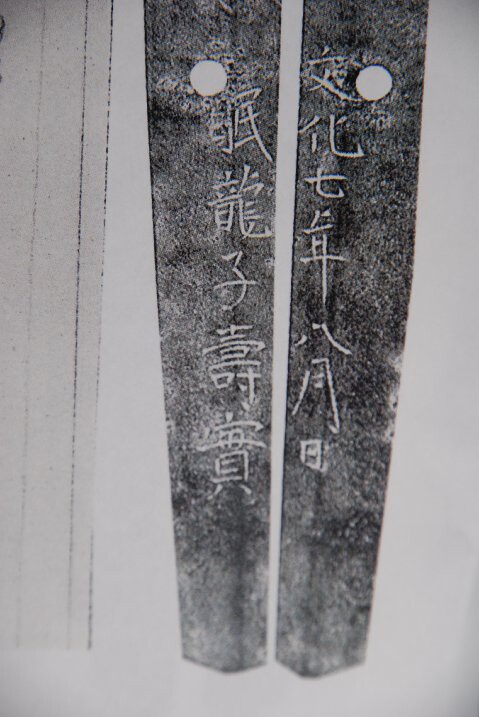 文化七年八月日
眠龍子壽實